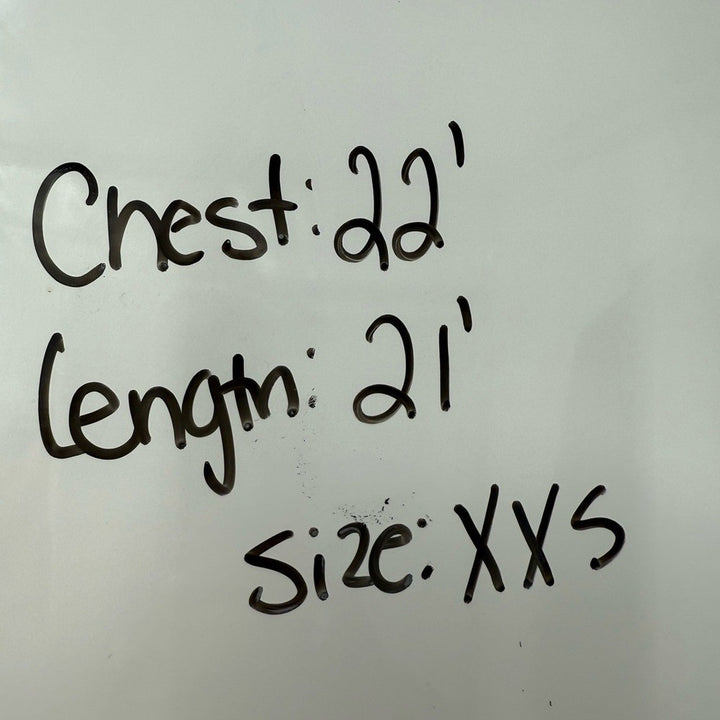 Chest: 22'
Length: 21'
Size: XXS